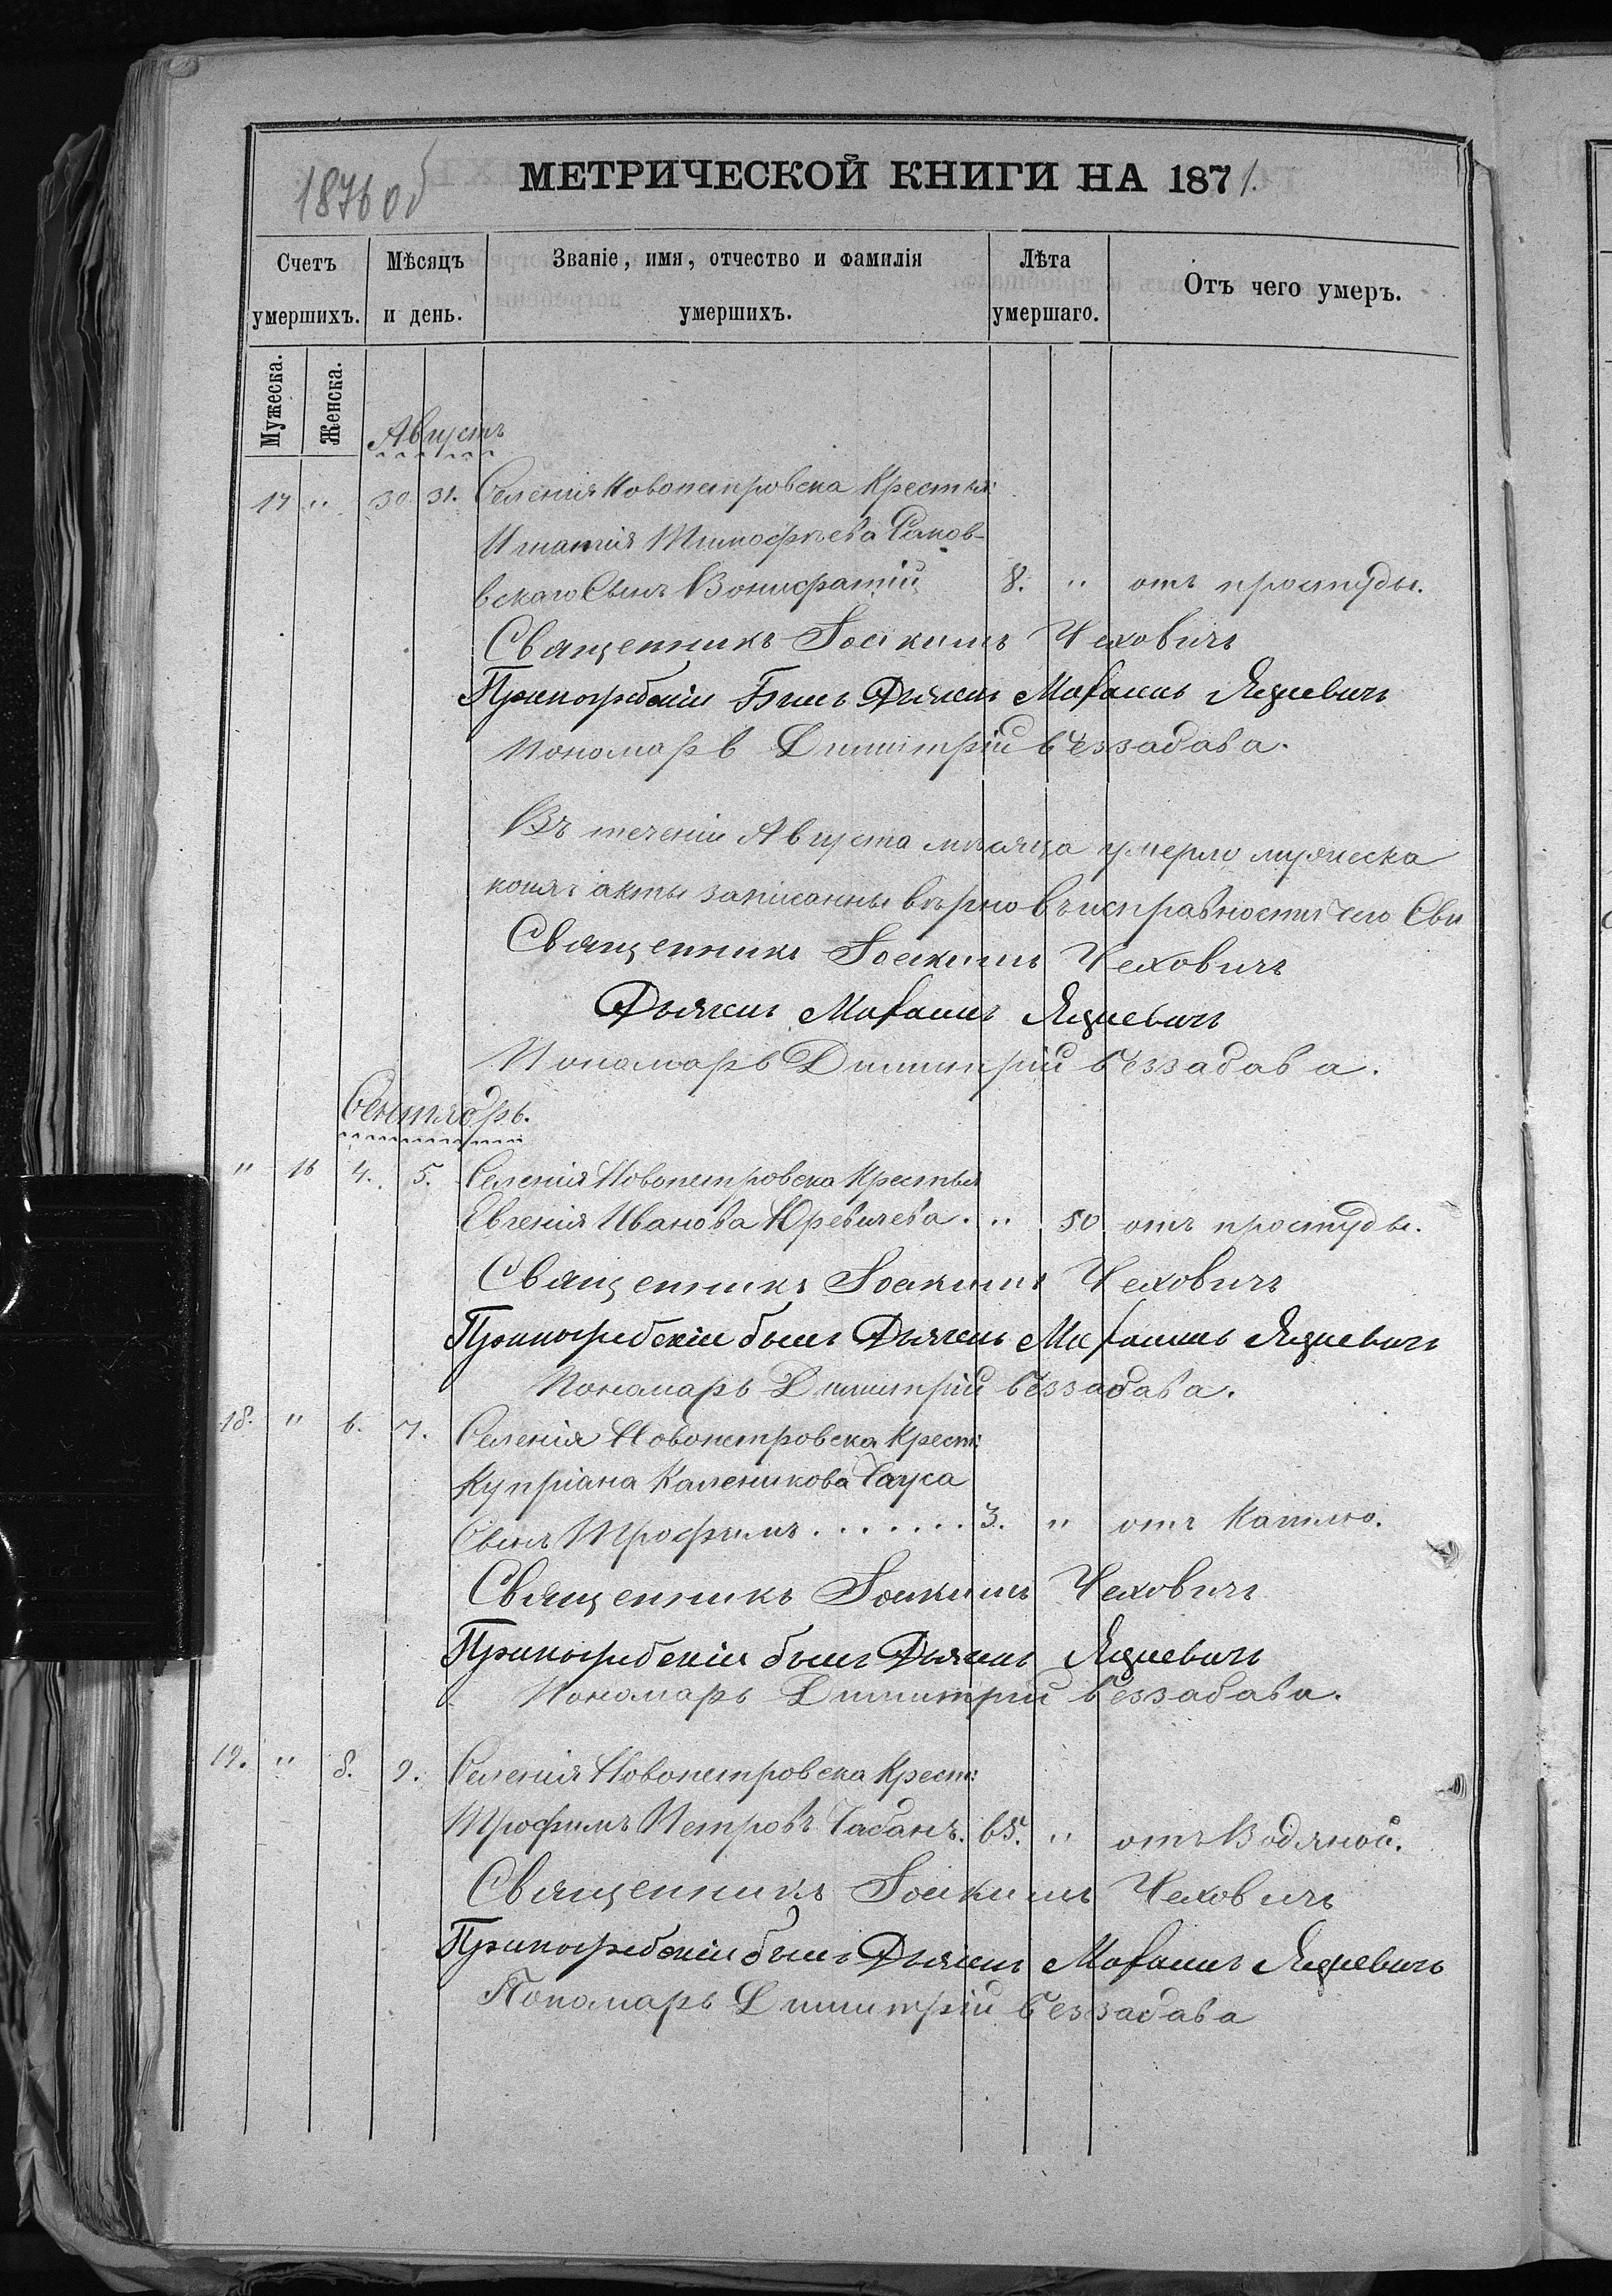 1876 об
МЕТРИЧЕСКОЙ КНИГИ НА 1871.
Счетъ умершихъ.
Мѣсяцъ и день.
Званіе, имя, отчество и фамилія умершихъ.
Лѣта умершаго.
Отъ чего умеръ.
Мужеска.
Женска.
Августъ
17 " 30 31. Селенія Новопетровска Крестья:
Игнатія Тимофѣева
вскаго Сынъ Вонифатій 8. " отъ простуды.
Священникъ Іоакимъ Чеховичъ
Припогребеніи Былъ Дьяконъ Яцкевичъ
Пономарь Димитрій Беззабава.
Въ теченіи Августа мѣсяца умерло мужеска
акты записанны вѣрно въ исправности чего Сви
Священникъ Іоакимъ Чеховичъ
Дьяконъ Яцкевичъ
Пономарь Димитрій Беззабава.
Сентябрь.
" 16 4. 5. Селенія Новопетровска Крестья
Евгенія Иванова Юревичева. " 50 отъ простуды.
Священникъ Іоакимъ Чеховичъ
Припогребеніи былъ Дьяконъ Яцкевичъ
Пономарь Димитрій Беззабава.
18. " 6. 7. Селенія Новопетровска Крест:
Купріана Каленикова
Сынъ Трофимъ....... 3. " отъ Кашлю.
Священникъ Іоакимъ Чеховичъ
Припогребеніи былъ Дьяконъ Яцкевичъ
Пономарь Димитрій Беззабава.
19. " 8. 9. Селенія Новопетровска Крест:
Трофимъ Петровъ Чабанъ. 65. " отъ Водяной.
Священникъ Іоакимъ Чеховичъ
Припогребеніи былъ Дьяконъ Яцкевичъ
Пономарь Димитрій Беззабава